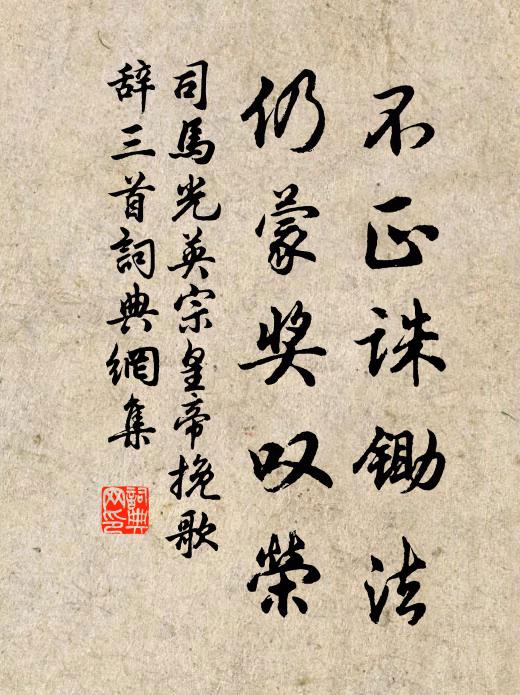 不正诛锄法
仍蒙奖叹荣
司馬光英宗皇帝挽歌
辞三首詞典網集
詞典网印